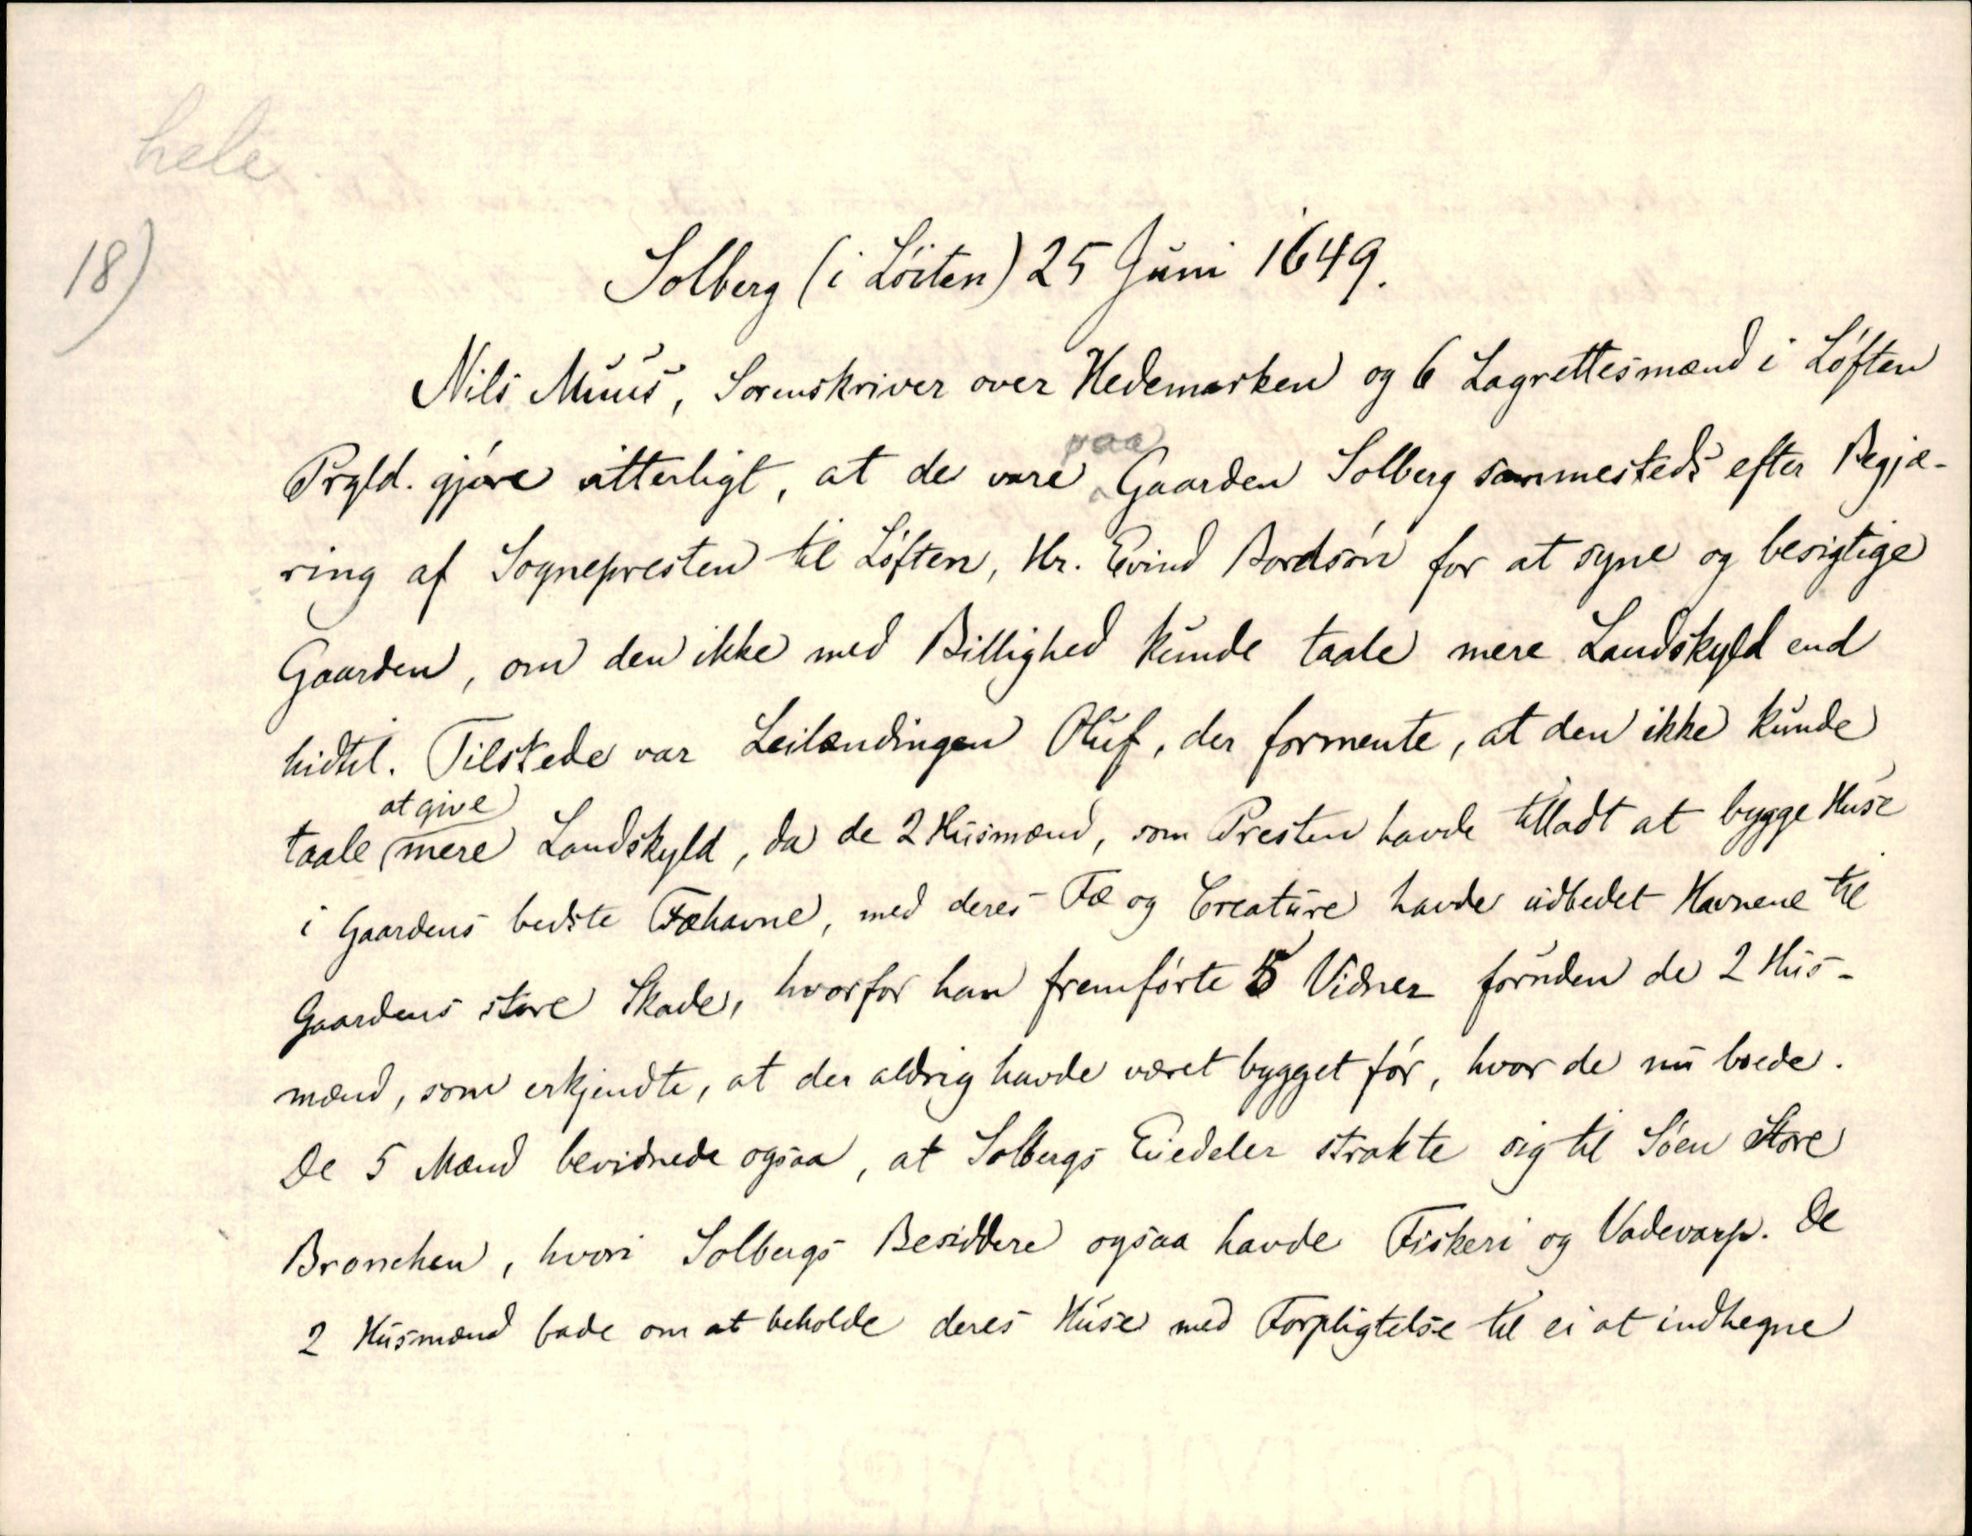 hele
18)
Solberg (i Löiten) 25 Juni 1649.
Nils Muus, Sorenskriver over Hedemarken og 6 Lagrettesmænd i Løften
paa
Prgld. gjøre vitterligt, at de vare Gaarden Solberg sammesteds efter Begjæ-
ring af Sognepresten til Løften, Hr. Eivind Bordsøn for at syne og besigtige
Gaarden, om den ikke med Billighed kunde taale mere Landskyld end
hidtil. Tilstede var Leilændingen Oluf, der formente, at den ikke kunde
at give
taale mere Landskyld, da de 2 Husmænd, som Presten havde tilladt at bygge Huse
i Gaardens bedste Fæhavne, med deres Fæ og Creature havde udbedet Havnene til
Gaardens store Skade, hvorfor han fremførte 5 Vidner foruden de 2 Hus-
mænd, som erkjendte, at der aldrig havde været bygget før, hvor de nu boede.
De 5 Mænd bevidnede ogsaa, at Solbergs Eiedeler strakte sig til Søen Store
Bronchen, hvori Solbergs Besiddere ogsaa havde Fiskeri og Vadevarp. De
2 Husmænd bade om at beholde deres Huse med Forpligtelse til ei at indhegne